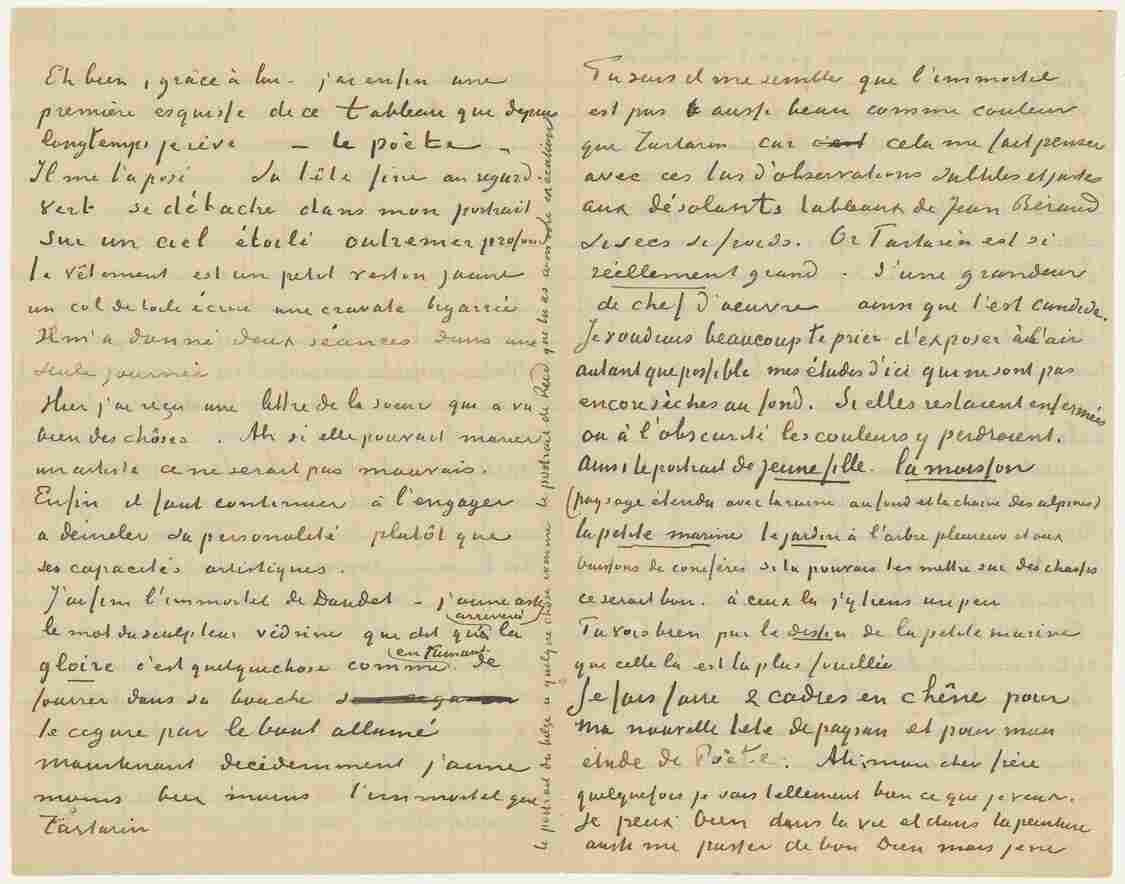 Eh bien, grâce à lui – j'ai enfin une
première esquisse de ce tableau que depuis
longtemps je rêve – le poète –
Il me l'a posé Sa tête fine au regard
vert se détache dans mon portrait
sur un ciel étoilé outremer profond
le vêtement est un petit veston jaune
un col de toile écrue une cravate bigarrée
Il m'a donné deux séances dans une
seule journée
Hier j'ai reçu une lettre de la soeur qui a vu
bien des chôses. Ah si elle pouvait marier
un artiste ce ne serait pas mauvais.
Enfin il faut continuer à l'engager
a demeler sa personalité plutôt que
ses capacités artistiques.
J'ai fini l'immortel de Daudet – j'aime assez
le mot du sculpteur védrine qui dit qu'arriver à la
gloire c'est quelque chose comme en fumant de
fourrer dans sa bouche
le cigare par le bout allumé
maintenant decidemment j'aime
moins bien moins l'immortel que
Tartarin
le portrait du belge a quelque chose comme execution le portrait de Reid que tu as
Tu sais il me semble que l'immortel
est pas aussi beau comme couleur
que Tartarin car cela me fait penser
avec ces tas d'observations subtiles et justes
aux désolants tableaux de Jean Beraud
si secs si froids. Or Tartarin est si
réellement grand. d'une grandeur
de chef d'oeuvre ainsi que l'est candide.
Je voudrais beaucoup te prier d'exposer à l'air
autant que possible mes études d'ici qui ne sont pas
encore sèches au fond. Si elles restaient enfermées
ou à l'obscurité les couleurs y perdraient.
ainsi le portrait de jeune fille. la moisson
(paysage étendu avec la ruine au fond et la chaine des alpines)
la petite marine le jardin à l'arbre pleureur et aux
buissons de conifères si tu pouvais les mettre sur des chassis
ce serait bon. à ceux la j'y tiens un peu
Tu vois bien par le dessin de la petite marine
que celle la est la plus fouillée
Je fais faire 2 cadres en chêne pour
ma nouvelle tete de paysan et pour mon
étude de Poëte. Ah, mon cher frère
quelquefois je sais tellement bien ce que je veux.
Je peux bien dans la vie et dans la peinture
aussi me passer de bon Dieu mais je ne